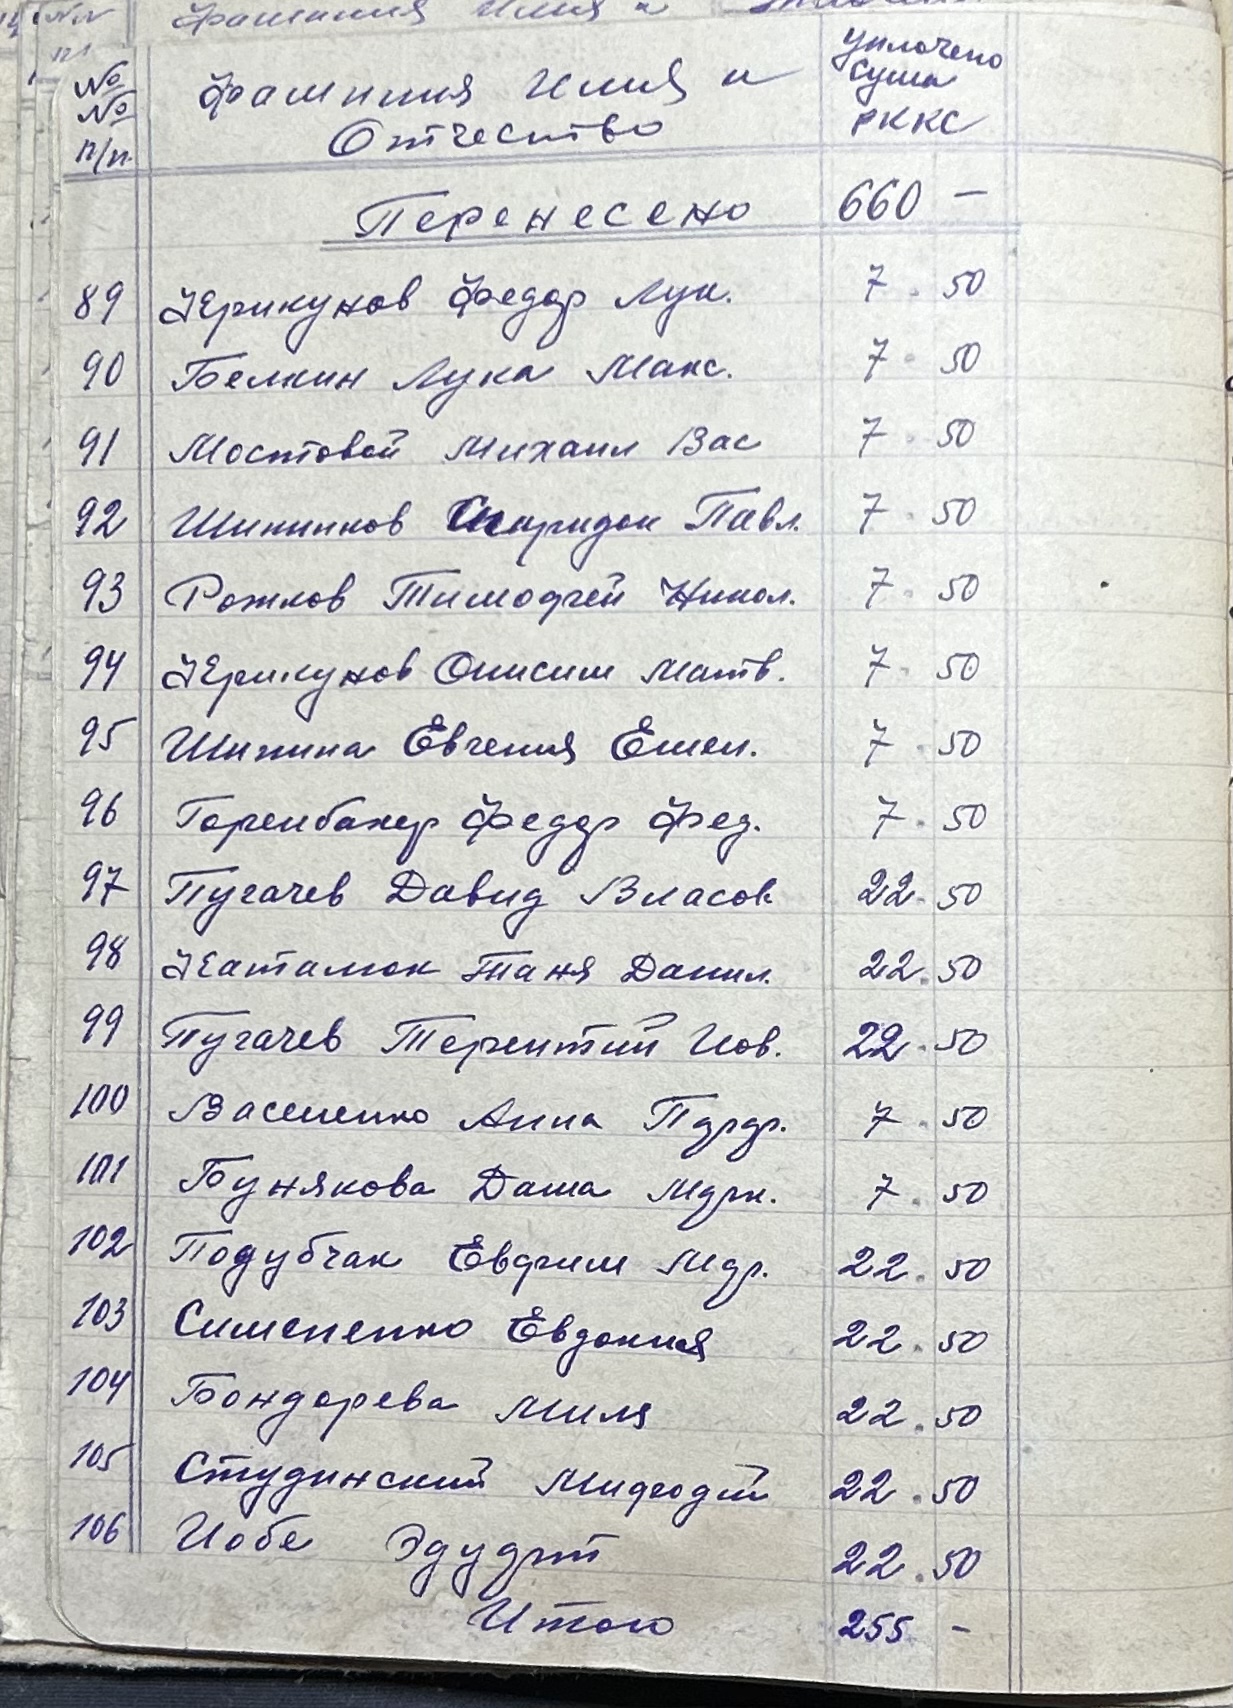 Фамилия Имя и
№ № п/п
Фамилия Имя и Отчество
Уплочено сума РККС
Перенесено 660 —
89 Керикунов Федор Лук. 7.50
90 Белкин Лука Макс. 7.50
91 Мостовой Михаил Вас 7.50
92 Шипинков Спиридон Павл. 7.50
93 Рожков Тимофей Никол. 7.50
94 Керикунов Онисим Матв. 7.50
95 Шипина Евгения Емел. 7.50
96 Горенбахер Федор Фед. 7.50
97 Пугачев Давид Власов 22.50
98 Каталюк Таня Данил. 22.50
99 Пугачев Терентий Иов. 22.50
100 Васененко Анна 7.50
101 Бунякова Даша 7.50
102 Подубчак Евфим 22.50
103 Симененко Евдокия 22.50
104 Бондарева Миля 22.50
105 Студинский Мифодий 22.50
106 Иобе Эдуарт 22.50
Итого 255 -